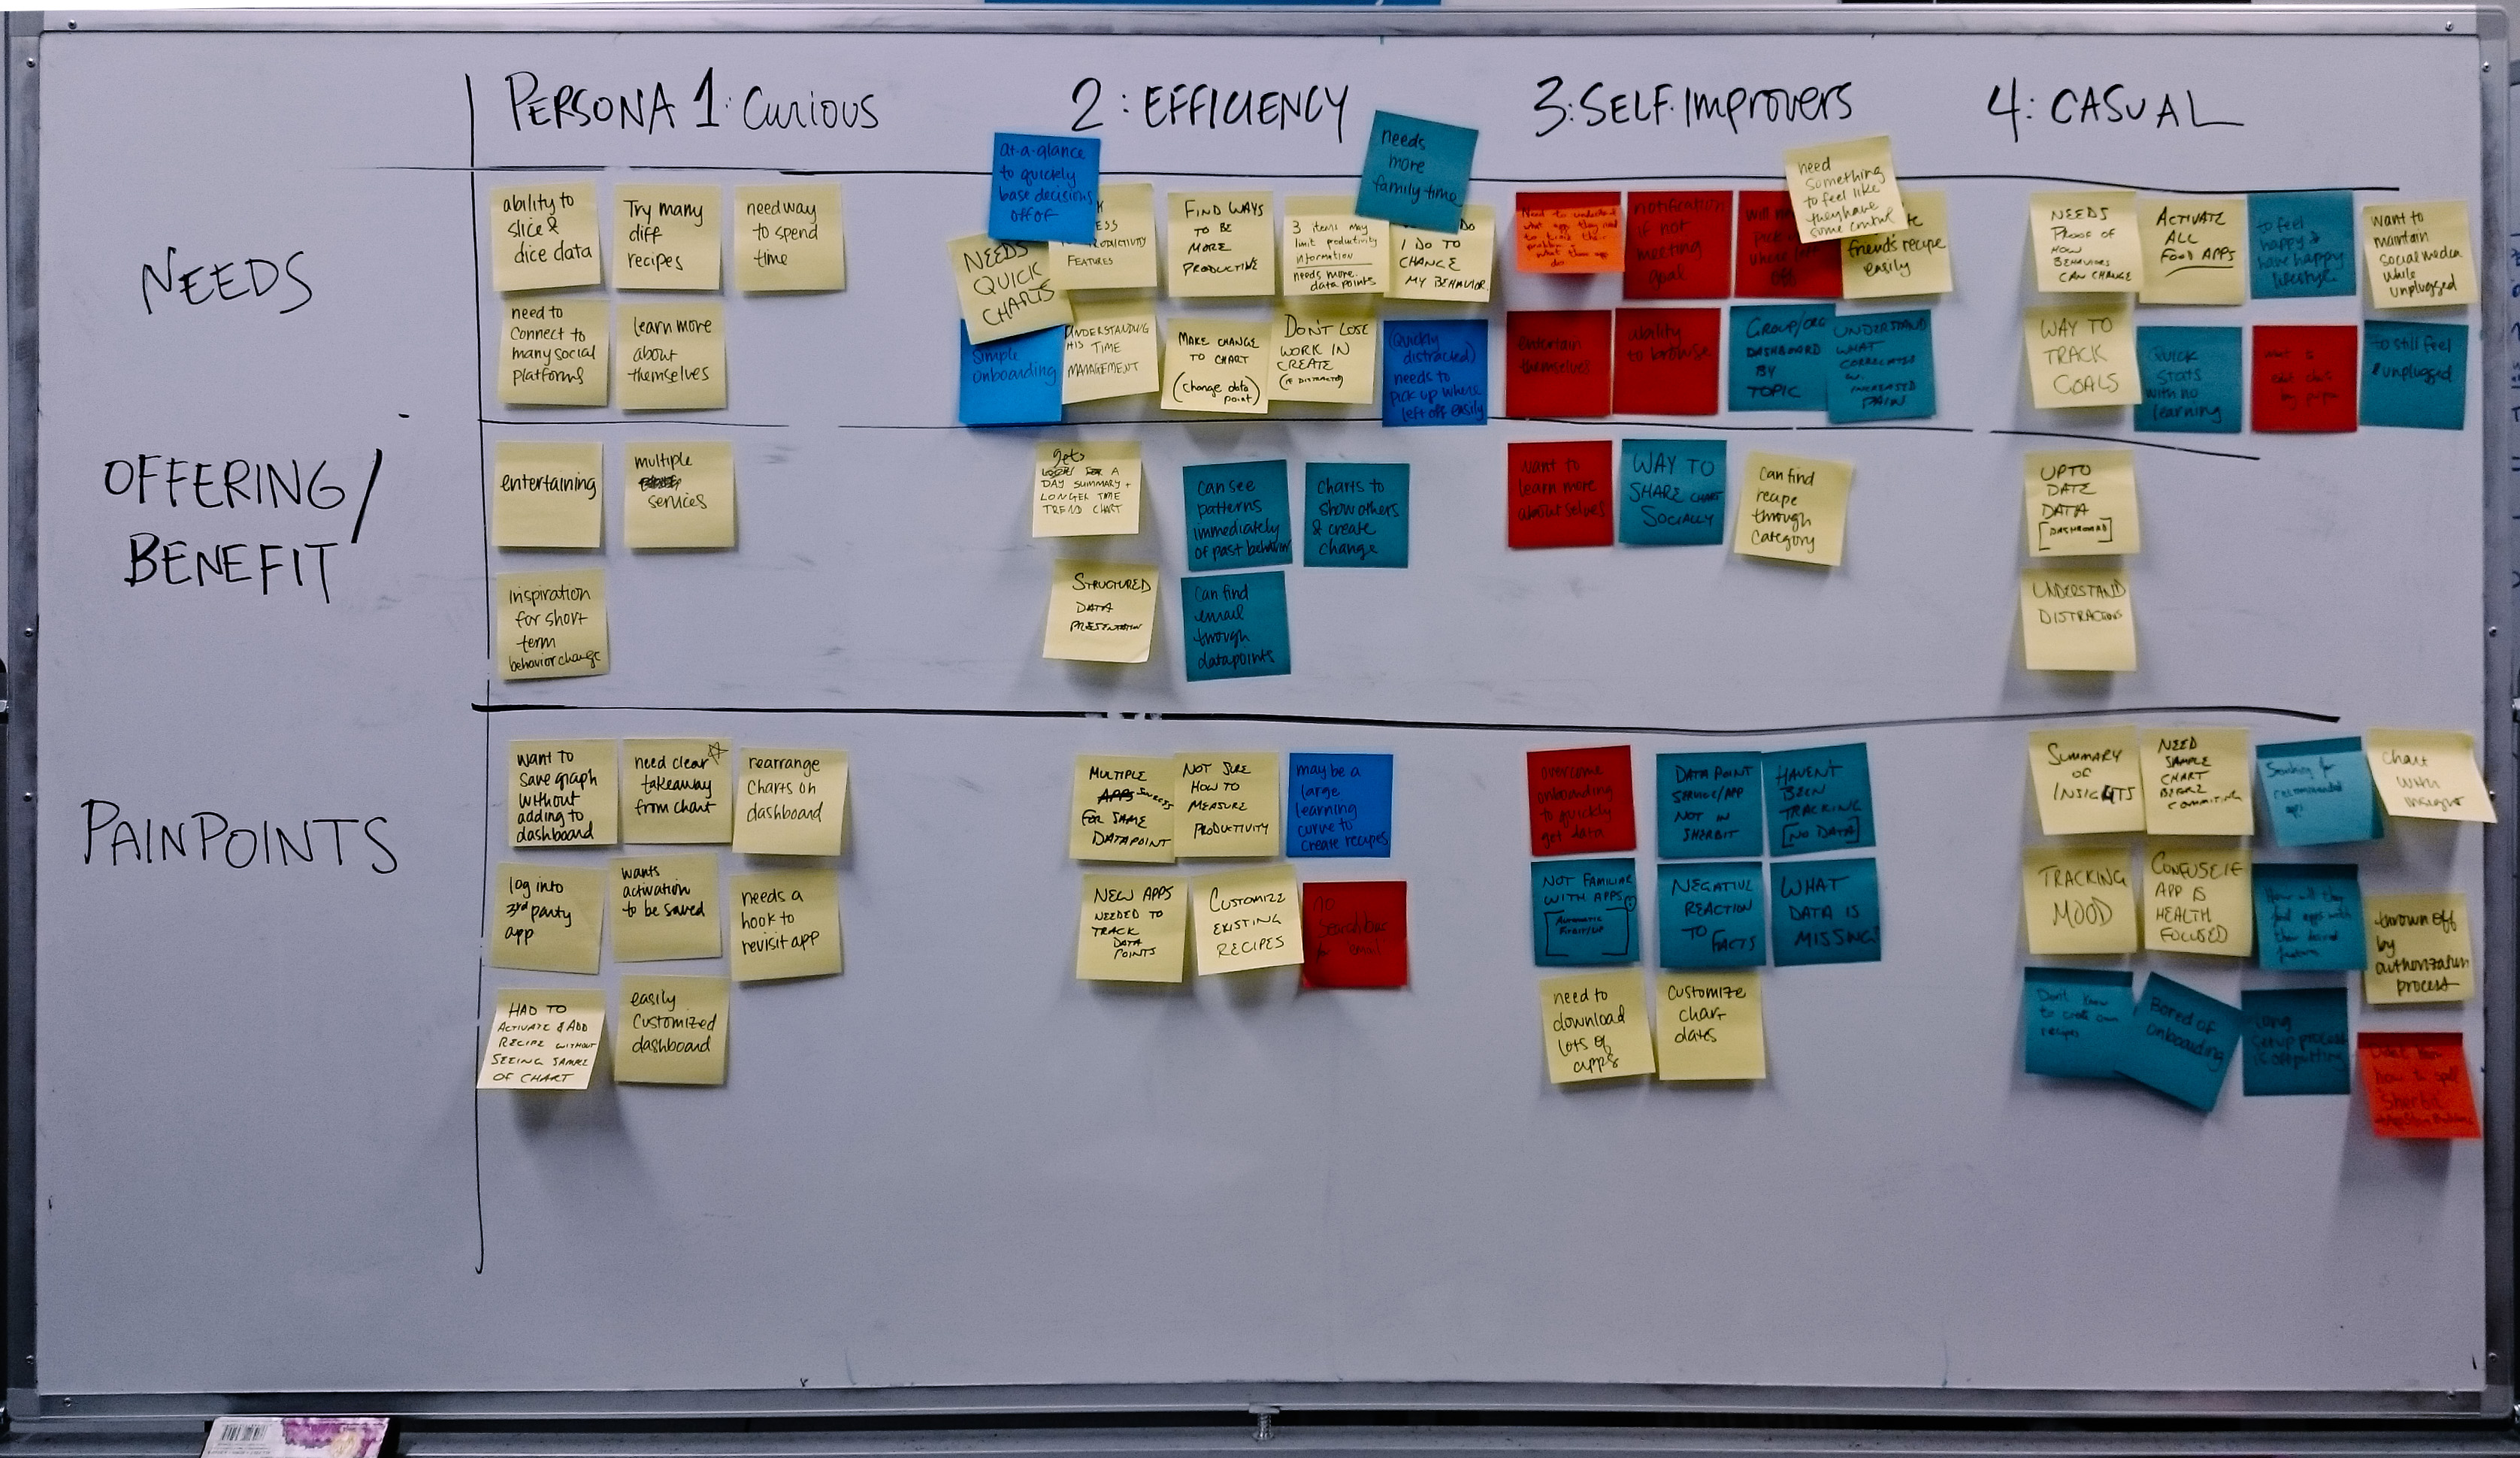 PERSONA 1: Curious
2: EFFICIENCY
3: SELF. Improvers
4: CASUAL
NEEDS
ability to
slice &
dice data
Try many
diff
recipes
need way
to spend
time
need to
connect to
many social
platforms
learn more
about
themselves
at-a-glance
to quickly
base decisions
off of
NEEDS
QUICK
CHARTS
Simple
onboarding
FEATURES
FIND WAYS
TO BE
MORE
PRODUCTIVE
3 items may
limit productivity
information
needs more
data points
needs
more
family time
DO
I DO TO
CHANGE
MY BEHAVIOR.
UNDERSTANDING
HIS TIME
MANAGEMENT
MAKE CHANGE
TO CHART
(change data
point)
DON'T LOSE
WORK IN
CREATE
(Quickly
distracted)
needs to
pick up where
left off easily
Need to understand
what app they need
to track their
problem &
what them app
do
notification
if not
meeting
goal
need
something
to feel like
they have
some control
friend's recipe
easily
entertain
themselves
ability
to browse
GROUP/ORG
DASHBOARD
BY
TOPIC
UNDERSTAND
WHAT
CORRELATES
W.
INCREASED
PAIN
NEEDS
PROOF OF
HOW
BEHAVIORS
CAN CHANGE
ACTIVATE
ALL
FOOD APPS
to feel
happy &
have happy
lifestyle
want to
maintain
social media
while
unplugged
WAY TO
TRACK
GOALS
QUICK
STATS
with no
learning
to still feel
unplugged
OFFERING/
BENEFIT
entertaining
multiple
services
inspiration
for short
term
behavior change
gets
A
DAY SUMMARY +
LONGER TIME
TREND CHART
can see
patterns
immediately
of past behavior
Charts to
show others
& create
change
STRUCTURED
DATA
PRESENTATION
Can find
email
through
datapoints
want to
learn more
about selves
WAY TO
SHARE CHART
SOCIALLY
Can find
recipe
through
category
UP TO
DATE
DATA
[DASHBOARD]
UNDERSTAND
DISTRACTIONS
PAINPOINTS
want to
save graph
without
adding to
dashboard
need clear
takeaway
from chart
rearrange
charts on
dashboard
log into
3rd party
app
wants
activation
to be saved
needs a
hook to
revisit app
HAD TO
ACTIVATE & ADD
RECIPE WITHOUT
SEEING SAMPLE
OF CHART
easily
customized
dashboard
MULTIPLE
APPS SOURCES
FOR SAME
DATAPOINT
NOT SURE
HOW TO
MEASURE
PRODUCTIVITY
may be a
large
learning
curve to
create recipes
NEW APPS
NEEDED TO
TRACK
DATA
POINTS
CUSTOMIZE
EXISTING
RECIPES
no
searchbar
for email
overcome
onboarding
to quickly
get data
DATA POINT
SERVICE/APP
NOT IN
SHERBIT
HAVEN'T
BEEN
TRACKING
[NO DATA]
NOT FAMILIAR
WITH APPS
NEGATIVE
REACTION
TO FACTS
WHAT
DATA IS
MISSING
need to
download
lots of
apps
customize
chart
dates
SUMMARY
OF
INSIGHTS
NEED
SAMPLE
CHART
BEFORE
COMMITING
Searching for
recommended
apps
Chart
with
insight
TRACKING
MOOD
CONFUSE IF
APP IS
HEALTH
FOCUSED
How will they
find apps with
their desired
features
thrown off
by
authorization
process
Don't know
to create own
recipes
Bored of
onboarding
Long
setup process
is offputting
how to spell
Sherbit